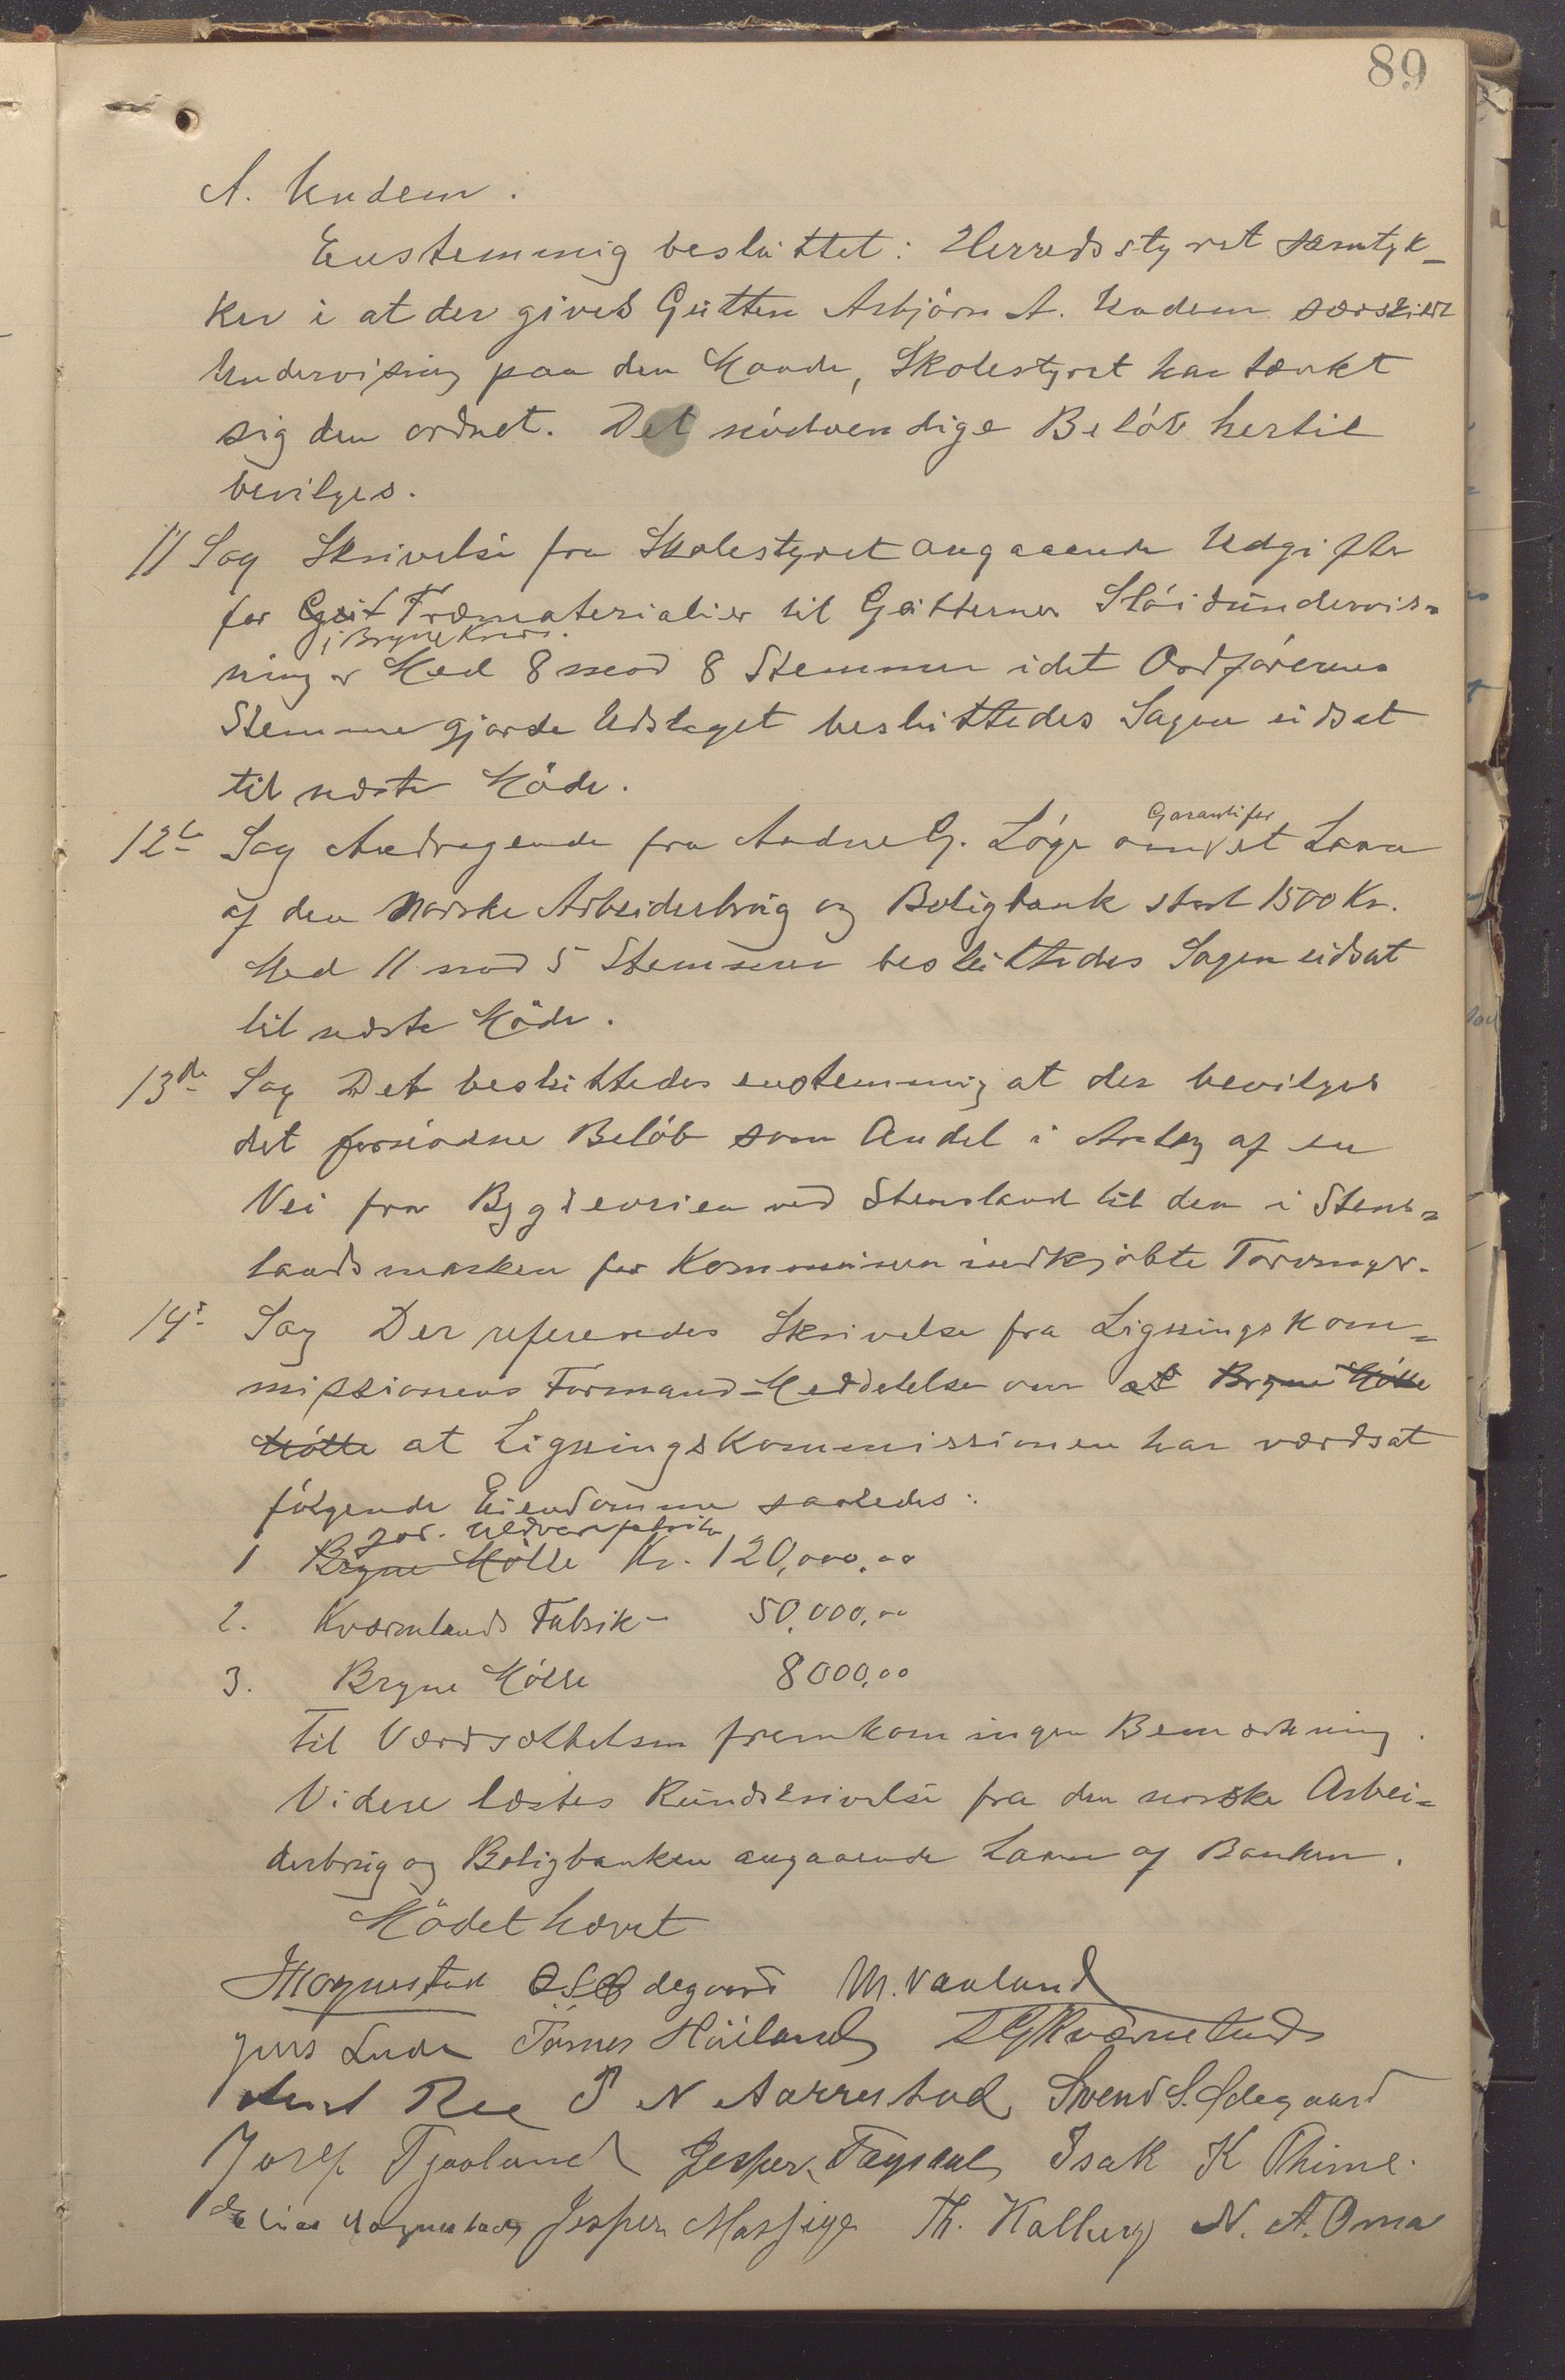 89
A. Undem.
Enstemmig besluttet: Herredsstyret samtyk-
ker i at der gives Gutten Asbjørn A. Undem særskilt
Undervisning paa den Maade, Skolestyret har tænkt
sig den ordnet. Det nødvendige Beløb hertil
bevilges.
11 Sag Skrivelse fra Skolestyret angaaende Udgifter
for Træmaterialier til Gutternes Sløidundervis-
i Bryne Kreds.
ning Med 8 mod 8 Stemmer idet Ordførerens
Stemme gjorde Udslaget besluttedes Sagen udsat
til næste Møde.
Garanti for
12te Sag Andragende fra Andne G. Løge om et Laan
af den Norske Arbeiderbrug og Boligbank stort 1500 Kr.
Med 11 mod 5 Stemmer besluttedes Sagen udsat
til næste Møde.
13de Sag Det besluttedes enstemmig at der bevilges
det fornødne Beløb som Andel i Anlæg af en
Vei fra Bygdeveien ved Stensland til den i Stens-
landsmarken for Kommunen indkjøbte Torvmyr.
14de Sag Der refereredes Skrivelse fra Ligningskom-
missionens Formand Meddelelse om at Bryne Mølle
Mølle at Ligningskommissionen har værdsat
følgende Eiendomme saaledes:
Jæd. Uldvarefabrik
1 Bryne Mølle Kr. 120,000,00
2. Kværnelands Fabrik - 50,000,00
3. Bryne Mølle 8000,00
Til Værdsættelsen fremkom ingen Bemærkning.
Videre læstes Rundskrivelse fra den norske Arbei-
derbrug og Boligbanken angaaende Laan af Banken.
Mødet hævet
Mognestad O S Ødegaard M. Vauland
Jens Lende Tørres Høiland Kværneland
Ree P N Aarrestad Svend S. Ødegaard
Josef Tjaaland Jesper Isak K Thime.
Elias Mognestad Jesper Th. Kalberg N. A. Oma